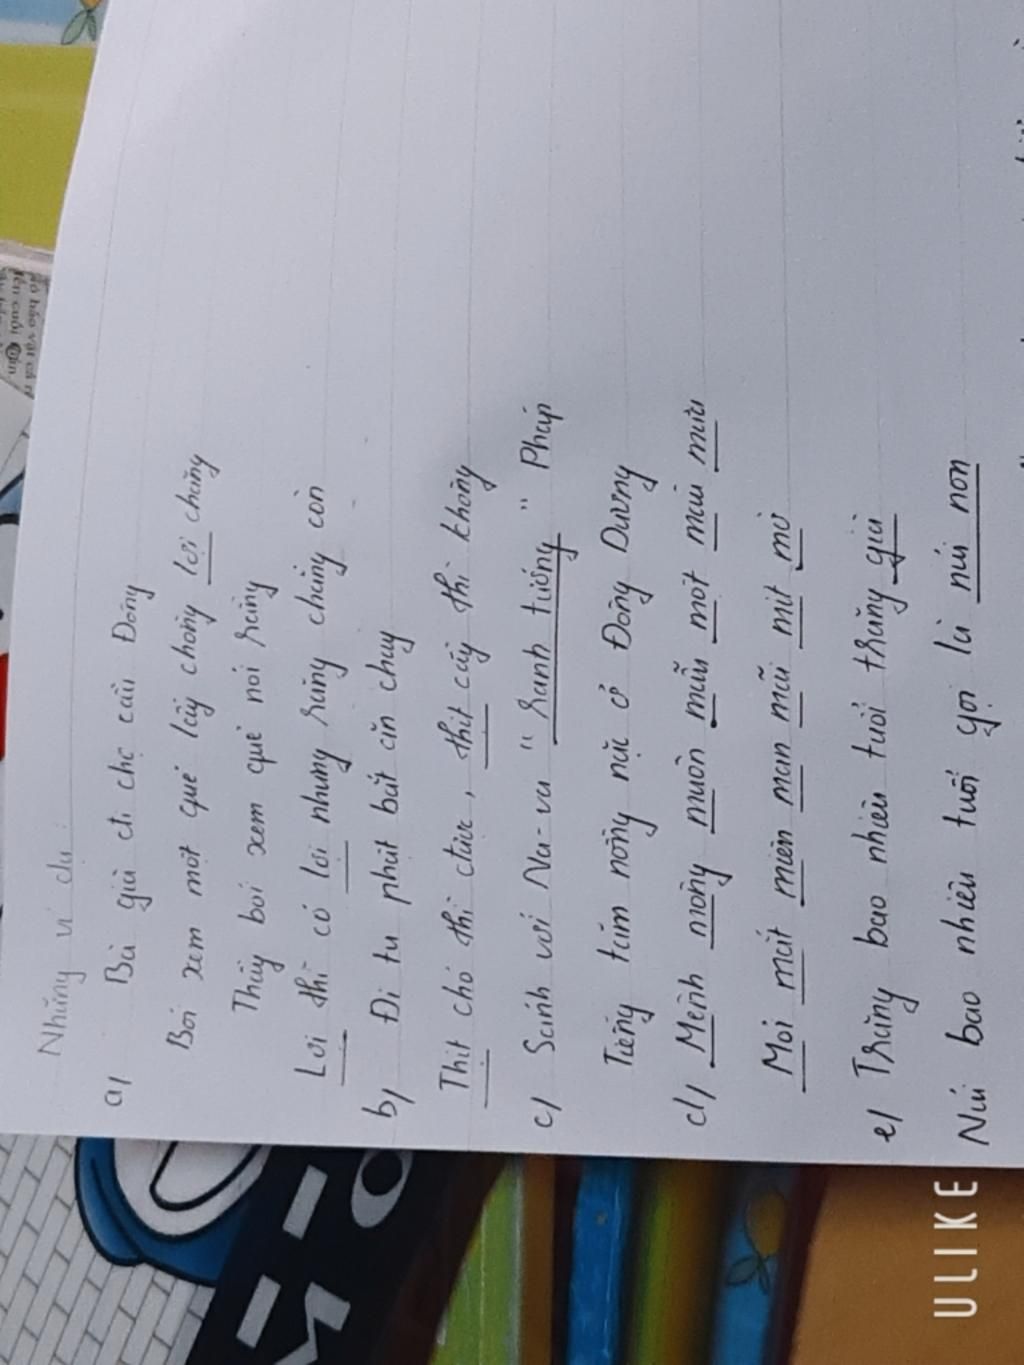 Những ví dụ:
a) Bà già đi chợ cầu Đông
Bói xem một quẻ lấy chồng lợi chăng
Thầy bói xem quẻ nói rằng
Lợi thì có lợi nhưng răng chẳng còn
b) Đi tu phật bắt ăn chay
Thịt chó thì được, thịt cầy thì không
c) Sánh với Na-va "ranh tướng" Pháp
Tiếng tăm nồng nặc ở Đông Dương
d) Mênh mông muôn mẫu một màu mưa
Mỏi mắt miên man mãi mịt mờ
e) Trăng bao nhiêu tuổi trăng già
Núi bao nhiêu tuổi gọi là núi non
ULIKE